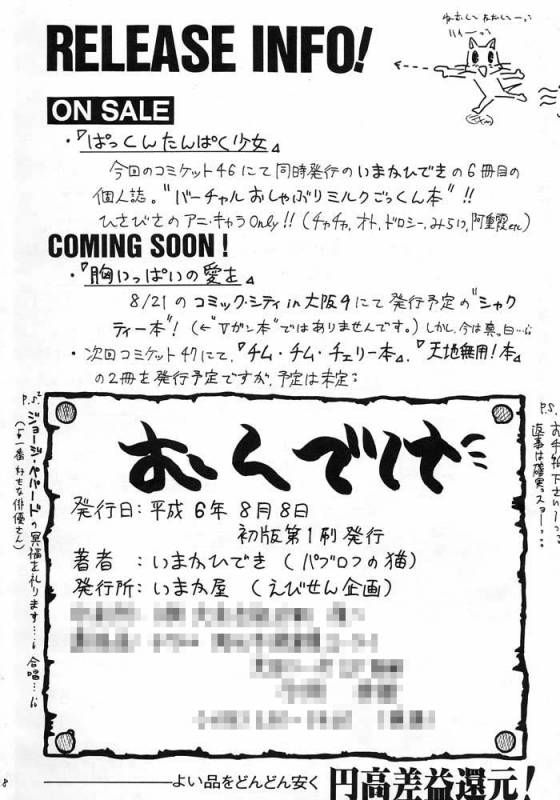 RELEASE INFO!
ON SALE
・『ぱっくんたんぱく少女』
今回のコミケット46にて同時発行のいまかひできの6冊目の
個人誌。"バーチャルおしゃぶりミルクごっくん本"!!
ひさびさのアニ・キャラOnly!!(チャチャ,オト,ドロシー,みちり,阿重霞etc)
COMING SOON!
・『胸いっぱいの愛を』
8/21のコミック・シティin大阪9にて発行予定の"シャク
ティー本"!(←"Vガン本"ではありませんです。)しかし,今は真白…
・次回コミケット47にて,『チム・チム・チェリー本』,『天地無用!本』
の2冊を発行予定ですが,予定は未定
P.S.
ジョージ・ペパードの冥福を祈ります…。合唱…
(今一番好きな俳優さん)
P.S.
お手紙下さいーっ
返事は確実スョー
おくづけ
発行日:平成6年8月8日
初版第1刷発行
著者:いまかひでき(パブロフの猫)
発行所:いまか屋(えびせん企画)
8
よい品をどんどん安く 円高差益還元!